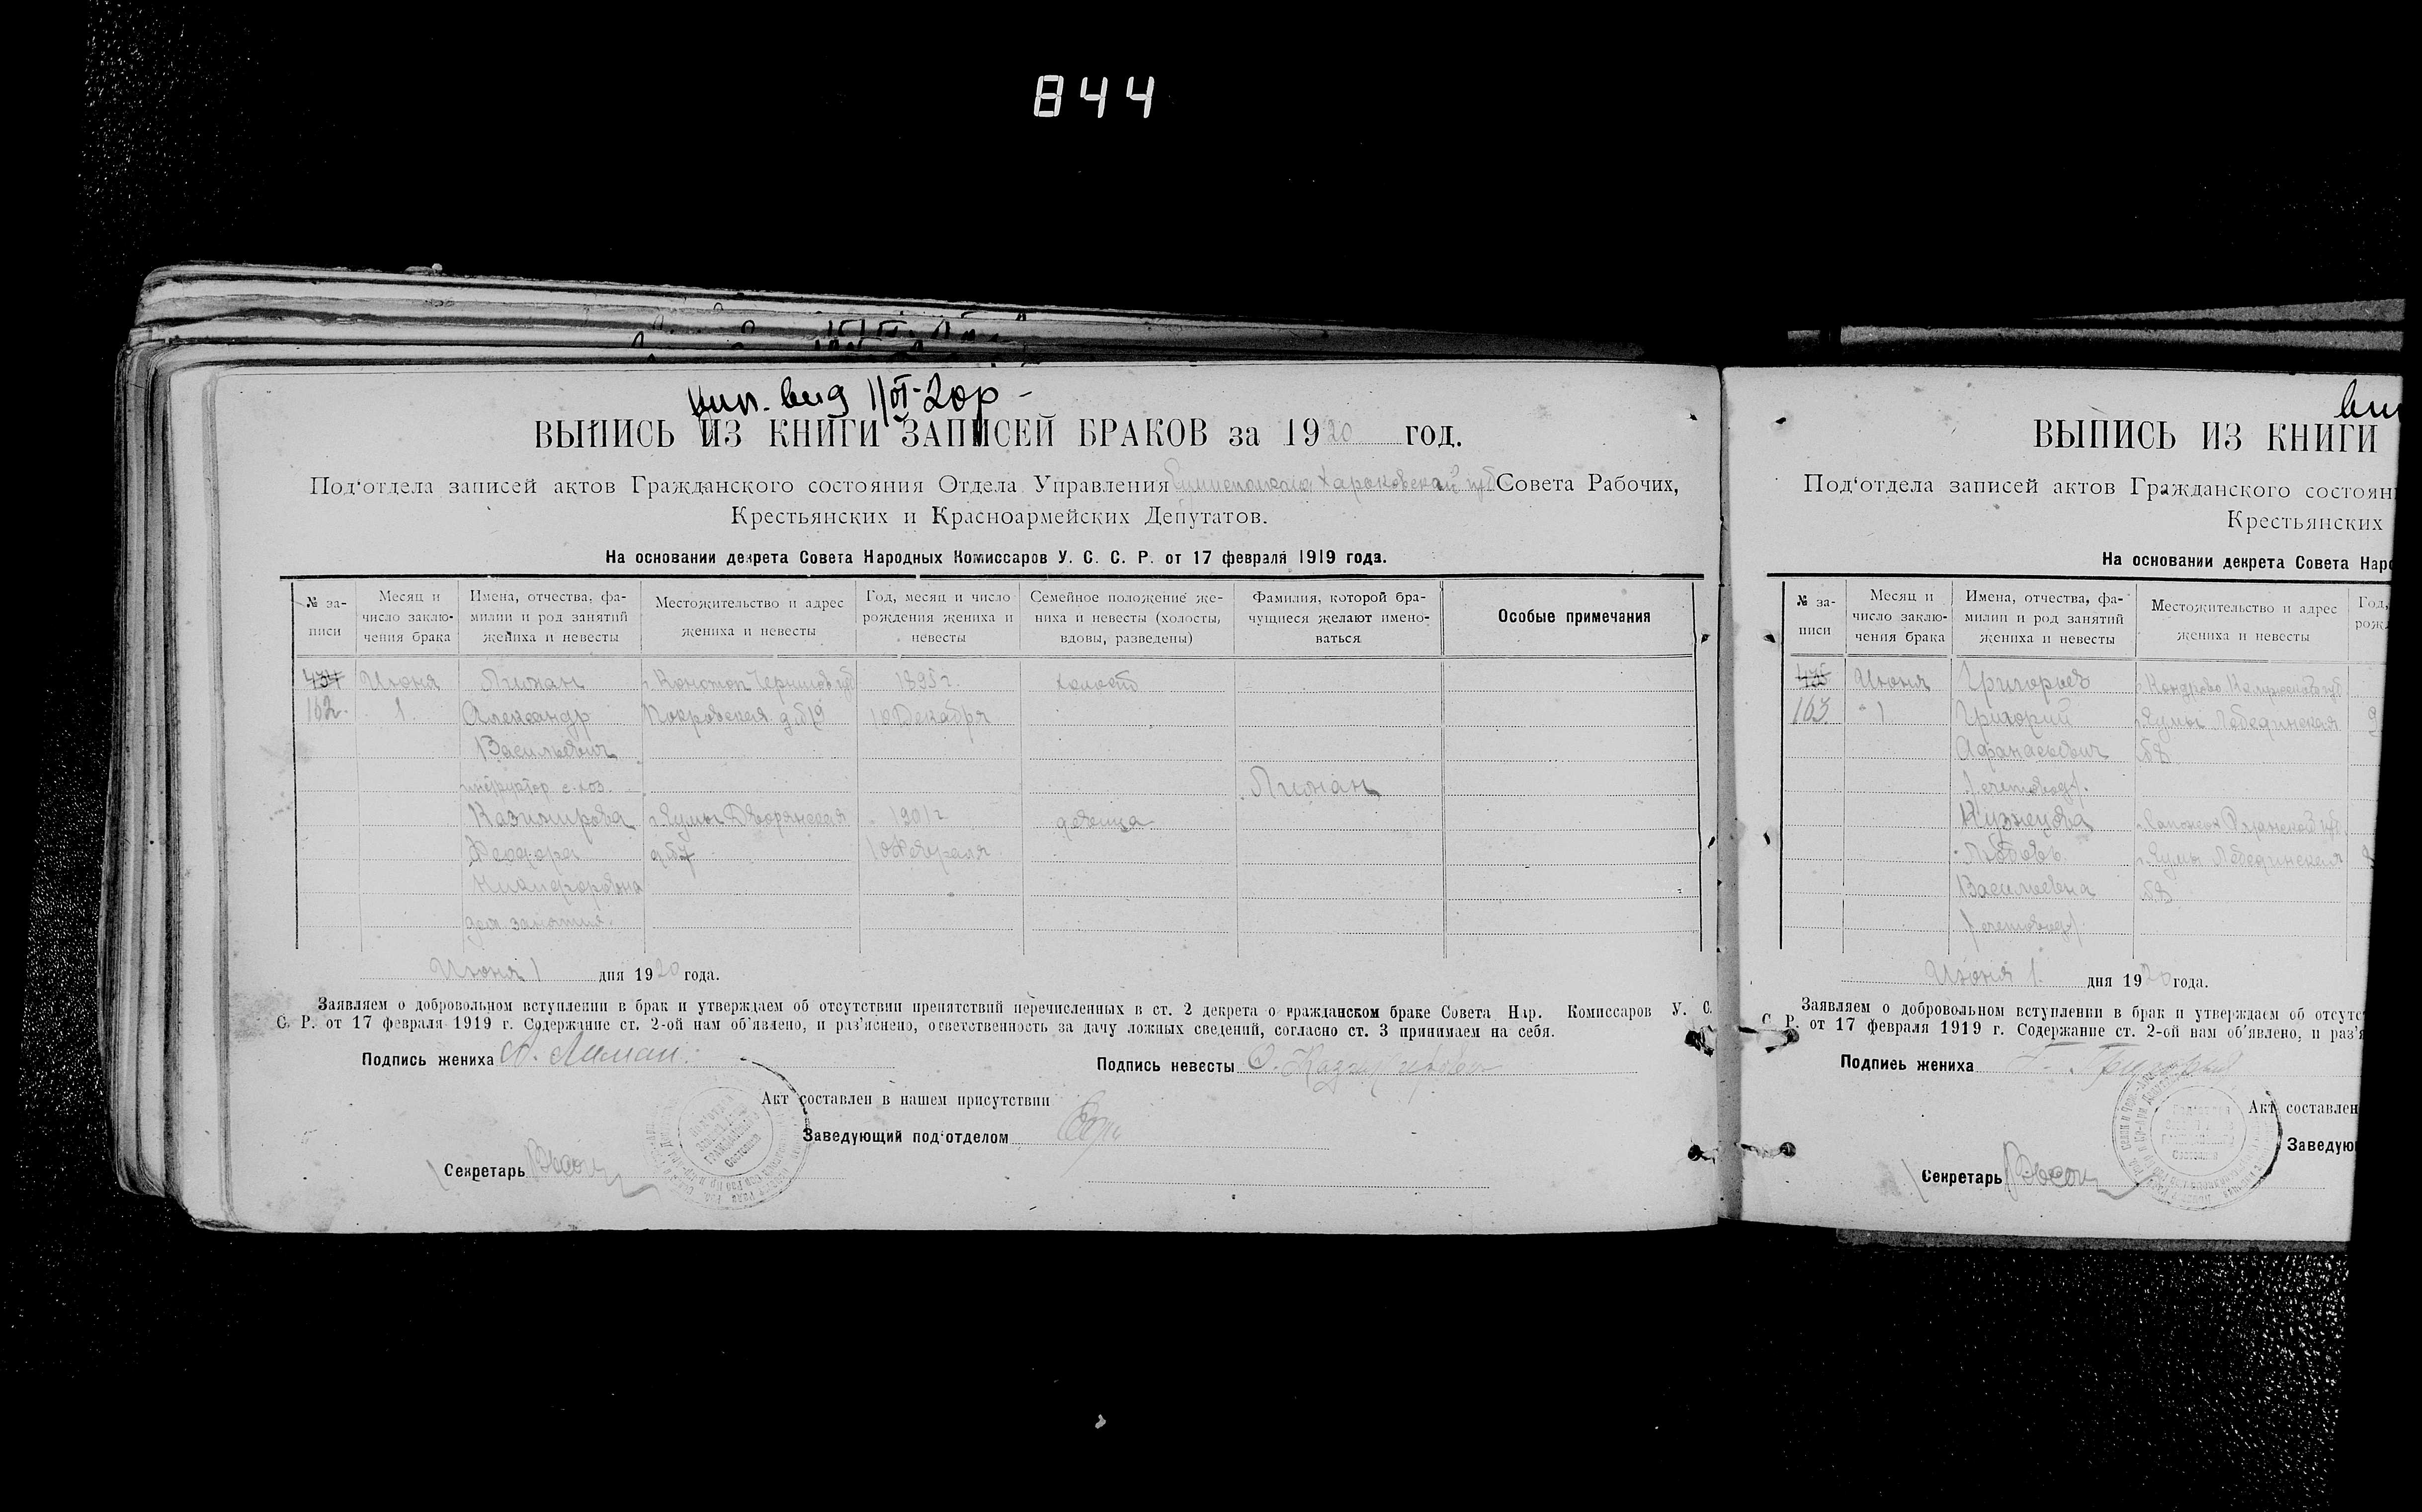 844
вид 11/VI-20р -
ВЫПИСЬ ИЗ КНИГИ ЗАПИСЕЙ БРАКОВ за 1920 год.
Под‘отдела записей актов Гражданского состояния Отдела Управления Харьковской губ Совета Рабочих,
Крестьянских и Красноармейских Депутатов.
На основании декрета Совета Народных Комиссаров У. С. С. Р. от 17 февраля 1919 года.
№ за-
писи
Месяц и
число заклю-
чения брака
Имена, отчества, фа-
милии и род занятий
жениха и невесты
Местожительство и адрес
жениха и невесты
Год, месяц и число
рождения жениха и
невесты
Семейное положение же-
ниха и невесты (холосты,
вдовы, разведены)
Фамилия, которой бра-
чущиеся желают имено-
ваться
Особые примечания
434 Июня Лиман г. Конотоп Чернигов губ 1895 г. холост
162. 1. Александр Покровская д №19 10 Декабря
Васильевич
инструктор с. хоз. Лиман
Казимирова г. Сумы Дворянская 1901 г. девица
Феодора д №7 10 Февраля
Никифоровна
дом. занятия.
Июня 1 дня 1920 года.
Заявляем о добровольном вступлении в брак и утверждаем об отсутствии препятствий перечисленных в ст. 2 декрета о гражданском браке Совета Нар. Комиссаров У. С.
С. Р. от 17 февраля 1919 г. Содержание ст. 2-ой нам об‘явлено, и раз‘яснено, ответственность за дачу ложных сведений, согласно ст. 3 принимаем на себя.
Подпись жениха А. Лиман. Подпись невесты Ф. Казимирова
Акт составлен в нашем присутствии
Заведующий под‘отделом
Секретарь
ВЫПИСЬ ИЗ КНИГИ
Под‘отдела записей актов Гражданского состоян
Крестьянских
На основании декрета Совета Наро
№ за-
писи
Месяц и
число заклю-
чения брака
Имена, отчества, фа-
милии и род занятий
жениха и невесты
Местожительство и адрес
жениха и невесты
Год,
рожд
435 Июня Григорьев г. Кондрово Калужской губ
163. 1 Григорий г. Сумы Лебединская 9
Афанасьевич №8
/счетовод/.
Кузнецова г. Сапожок Рязанской губ
Любовь г. Сумы Лебединская
Васильевна №8
/счетовод/
Июня 1. дня 1920 года.
Заявляем о добровольном вступлении в брак и утверждаем об отсутс
С. Р. от 17 февраля 1919 г. Содержание ст. 2-ой нам об‘явлено, и раз‘я
Подпись жениха Г. Григорьев
Акт составлен
Заведую
Секретарь